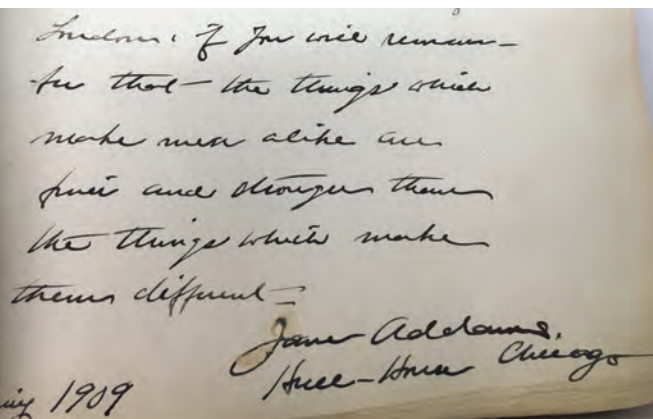 London: if you will remem-
ber that — the things which
make men alike are
finer and stronger than
the things which make
them different —
Jane Addams.
Hull-House Chicago
1909